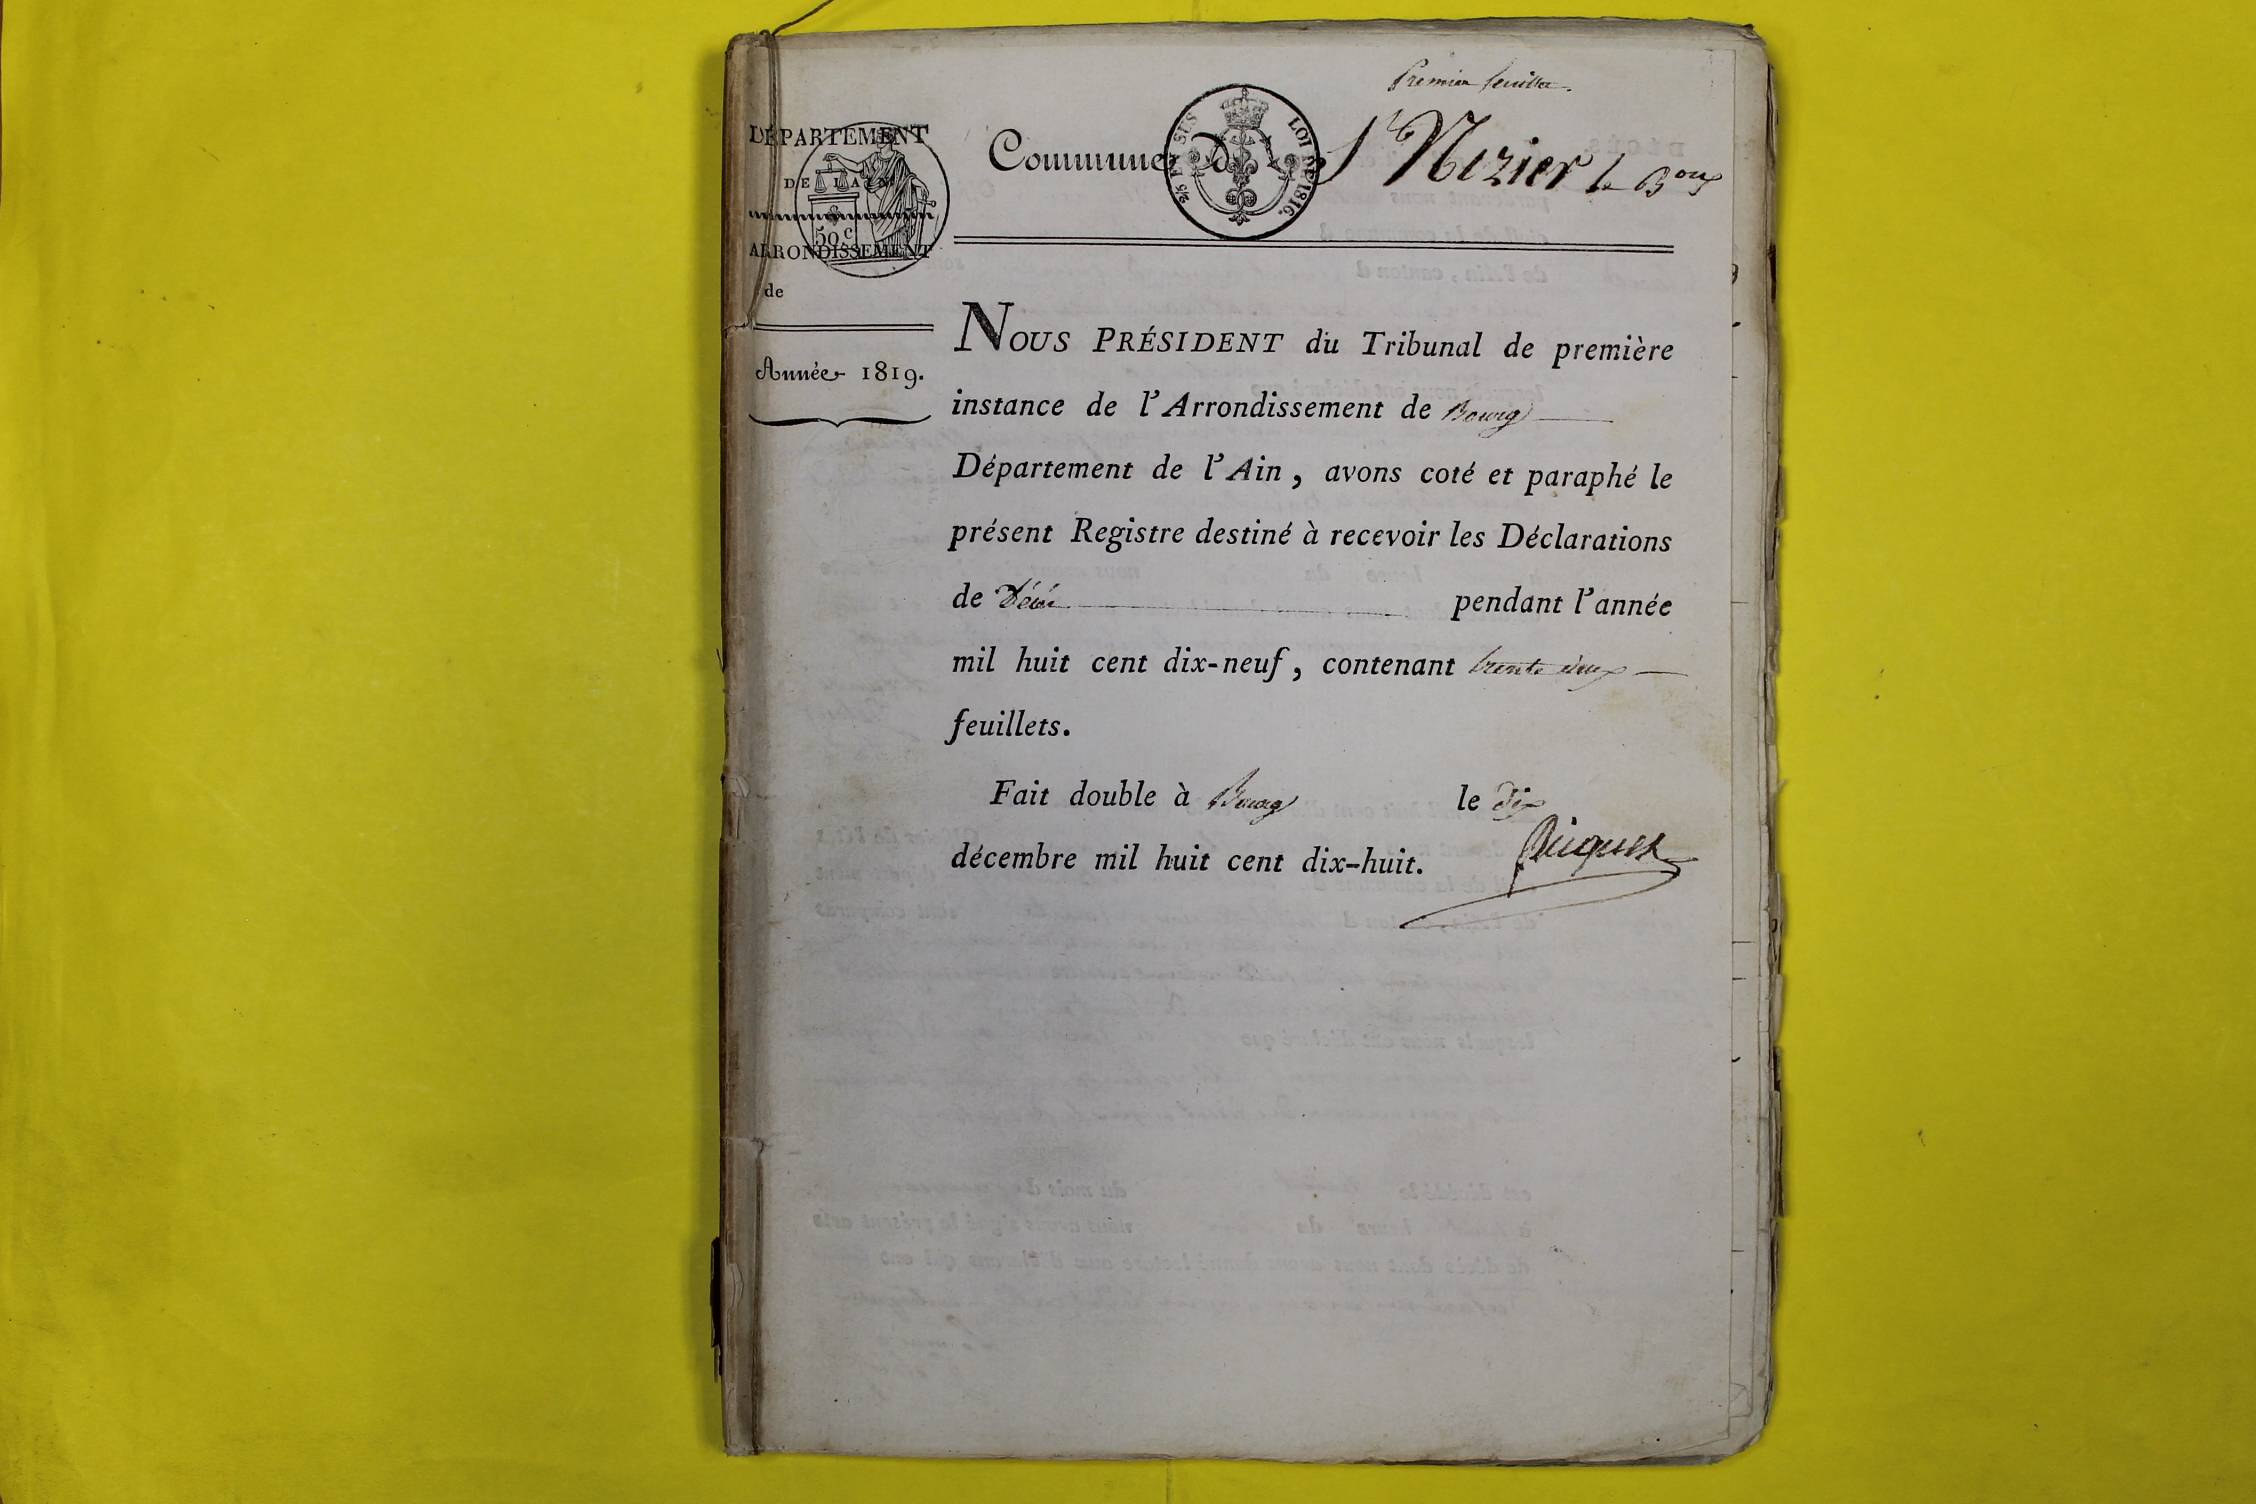 Premier feuillet.
DÉPARTEMENT
DE L'AIN
50 c
ARRONDISSEMENT
de
Année 1819.
Commune de St Nizier le Boux
2/5 EN SUS LOI DE 1816.
NOUS PRÉSIDENT du Tribunal de première
instance de l'Arrondissement de Bourg
Département de l'Ain, avons coté et paraphé le
présent Registre destiné à recevoir les Déclarations
de Décès pendant l'année
mil huit cent dix-neuf, contenant trente deux
feuillets.
Fait double à Bourg le dix
décembre mil huit cent dix-huit.